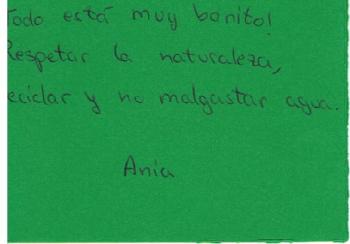 Todo está muy bonito!
Respetar la naturaleza,
eciclar y no malgastar agua.
Ania